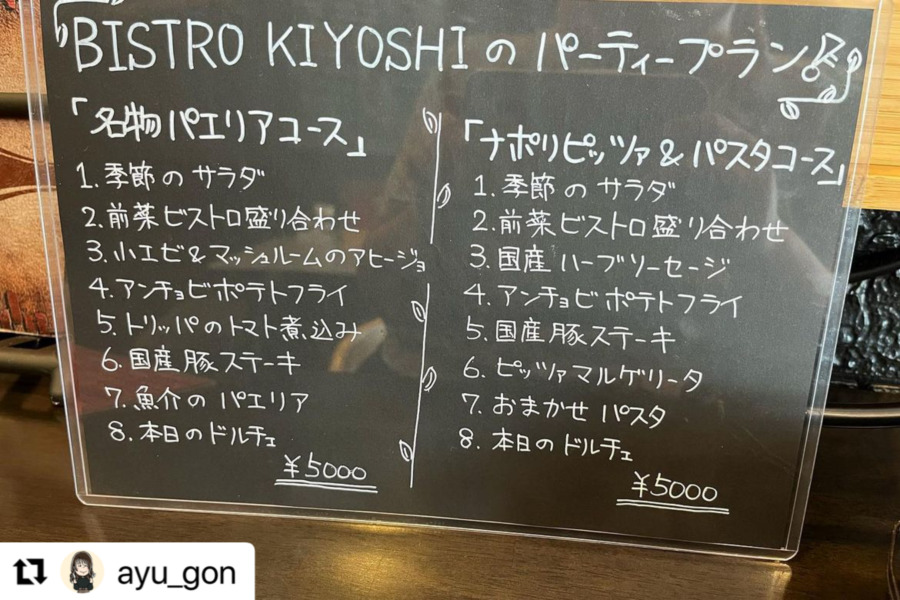 BISTRO KIYOSHIの パーティープラン
「名物パエリアコース」
1.季節のサラダ
2.前菜ビストロ盛り合わせ
3.小エビ&マッシュルームのアヒージョ
4.アンチョビポテトフライ
5.トリッパのトマト煮込み
6.国産豚ステーキ
7.魚介のパエリア
8.本日のドルチェ
¥5000
「ナポリピッツァ&パスタコース」
1.季節のサラダ
2.前菜ビストロ盛り合わせ
3.国産ハーブソーセージ
4.アンチョビポテトフライ
5.国産豚ステーキ
6.ピッツァマルゲリータ
7.おまかせパスタ
8.本日のドルチェ
¥5000
ayu_gon